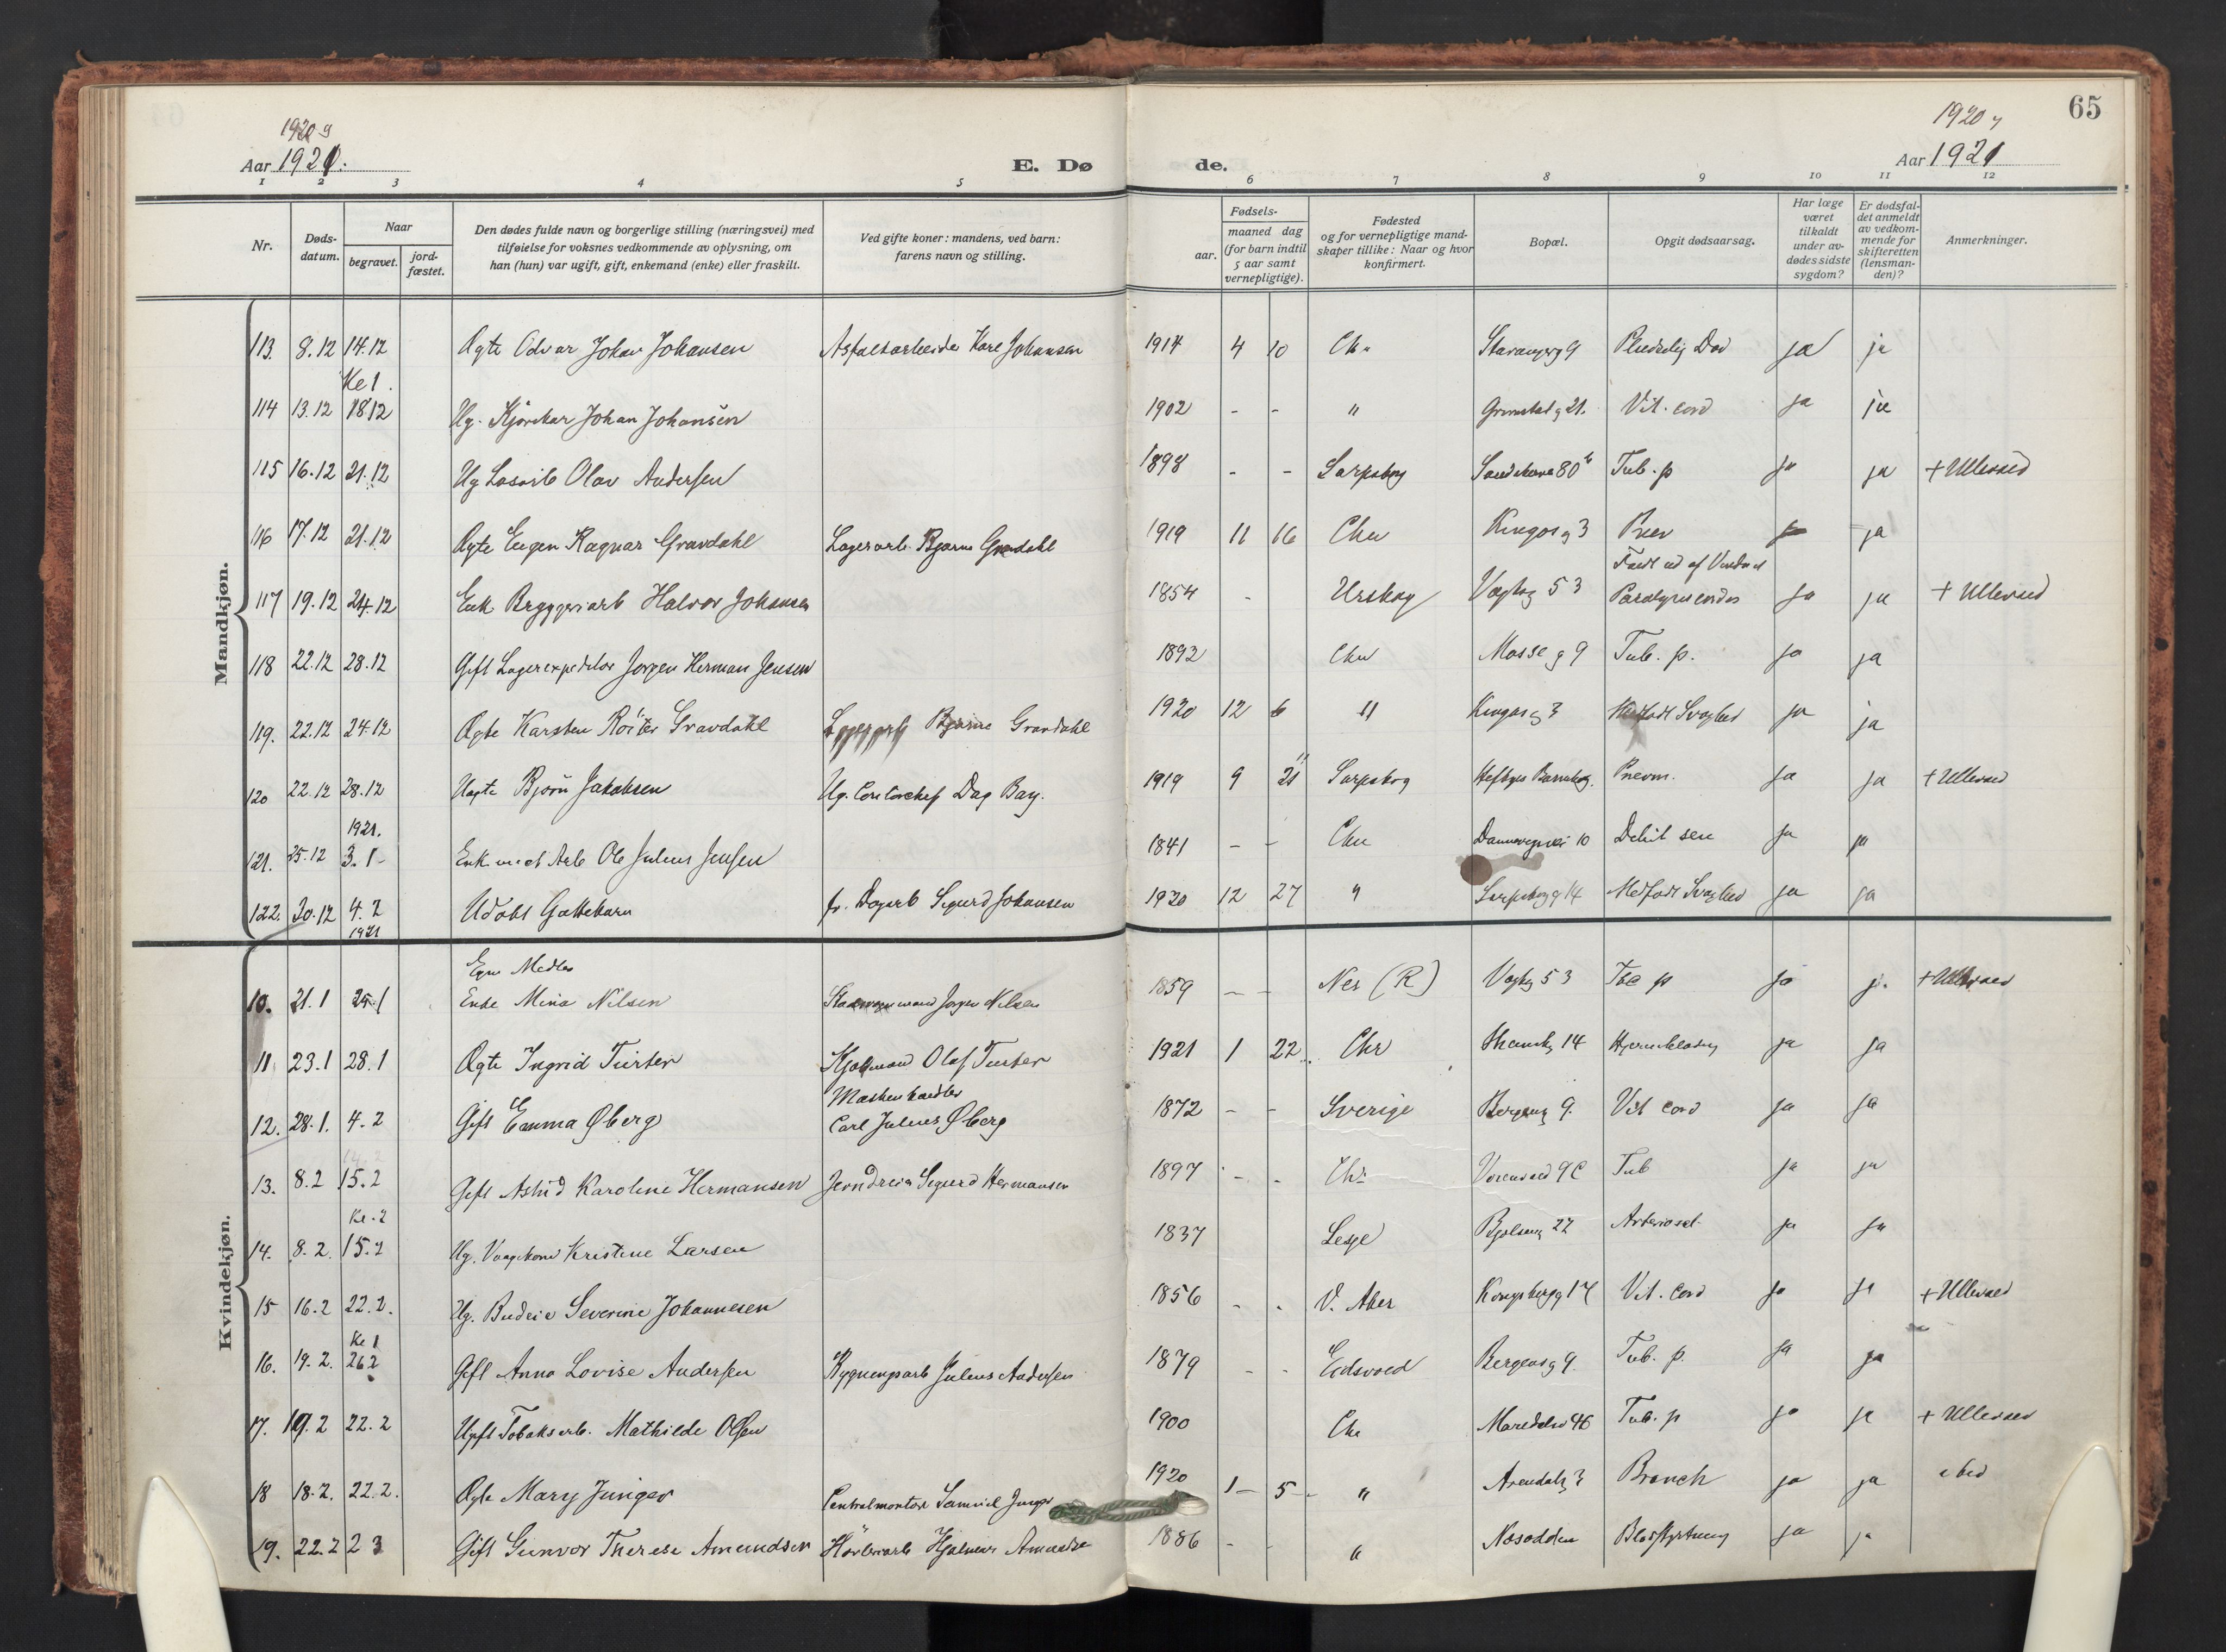 1920 g
Aar 1921.
E. Dø
de.
1920 g
Aar 1921
65
1 2 3 4 5 6 7 8 9 10 11 12
Nr.
Døds-
datum.
Naar
begravet.
jord-
fæstet.
Den dødes fulde navn og borgerlige stilling (næringsvei) med
tilføielse for voksnes vedkommende av oplysning, om
han (hun) var ugift, gift, enkemand (enke) eller fraskilt.
Ved gifte koner: mandens, ved barn:
farens navn og stilling.
Fødsels-
aar.
maaned dag
(for barn indtil
5 aar samt
vernepligtige).
Fødested
og for vernepligtige mand-
skaper tillike: Naar og hvor
konfirmert.
Bopæl.
Opgit dødsaarsag.
Har læge
været
tilkaldt
under av-
dødes sidste
sygdom?
Er dødsfal-
det anmeldt
av vedkom-
mende for
skifteretten
(lensman-
den)?
Anmerkninger.
Mandkjøn.
113. 8.12 14.12 Ægte Odvar Johan Johansen Asfaltarbeider Karl Johansen 1914 4 10 Chr Stavangerg 9 Pludselig Død ja ja
Ke 1.
114 13.12 18.12 Ug. Johan Johansen 1902 - - " Grimstadg 21. Vit. cord ja ja
115 16.12 21.12 Ug Løsarb Olav Andersen 1898 - - Sarpsborg 80 Tub. p ja ja + Ullevaal
116 17.12 21.12 Ægte Eugen Ragnar Gravdahl Lagerarb. Bjarne Gravdahl 1919 11 16 Chr Kingosg 3 Pnev ja
117 19.12 24.12 Enk Bryggeriarb Halvor Johansen 1854 - Urskog Vogtsg 53 Faldt ud af Vinduet
Paralysis cordis ja ja + Ullevaal
118 22.12 28.12 Gift Lagerexpeditør Jørgen Herman Jensen 1893 Chr Mosseg 9 Tub. p. ja ja
119. 22.12 24.12 Ægte Karsten Gravdahl Lagerarb Bjarne Gravdahl 1920 12 6 " Kingosg 3 Medfødt Svaghed ja ja
120 22.12 28.12 Uægte Bjørn Jakobsen Ug. Dag Bay. 1919 9 21 Sarpsborg Pnevm. ja ja + Ullevaal
1921.
121. 25.12 3.1 Enkemand Arb Ole Julius Jensen 1841 - - Chr Dannevigsvei 10 Debil sen ja ja
122. 30.12 4.2 Udøbt Guttebarn fr. Dagarb Sigurd Johansen 1920 12 27 " Sarpsborgg 14 Medfødt Svaghed ja ja
1921
Kvindekjøn.
10. 21.1 25.1 Enke Mina Nilsen Jørgen Nilsen 1859 - - Nes (R) Vogtsg 53 Tbc p ja ja + Ullevaal
11. 23.1 28.1 Ægte Ingrid Turter Olaf Turter 1921 1 22 Chr 14 Hjerneblødning ja ja
12. 28.1. 4.2 Gift Emma Øberg Carl Julius Øberg 1872 - - Sverige Bergensg 9. Vit cord ja ja
13. 8.2 15.2 Gift Astrid Karoline Hermansen Jerndreier Sigurd Hermansen 1897 - - Chr Tub ja ja
Ke. 2
14. 8.2. 15.2 Ug. Kristine Larsen 1837 Lesje Bjølseng 22 Arterioscl. ja ja
15 16.2 22.2. Ug. Budeie Severine Johannesen 1856 - - V. Aker Kongsbergg 17 Vit. Cord ja ja + Ullevaal
Ke 1
16. 19.2. 26.2 Gift Anna Lovise Andersen Bygningsarb Julius Andersen 1879 - - Eidsvold Bergensg 9. Tub. p. ja ja
17. 19.2 22.2 Ugift Tobaksarb. Mathilde Olsen 1900 Chr Maridalsv 46 Tub. p ja ja + Ullevaal
18 18.2. 22.2. Ægte Mary Junger Centralmontør Samuel Junger 1920 1 - 5 - " Arendalsg 3 Bronch ja ja
19. 22.2 2 3 Gift Gunvor Therese Amundsen Høvleriarb Hjalmar Amundsen 1886 - - " Nesodden Blodstyrtning ja ja